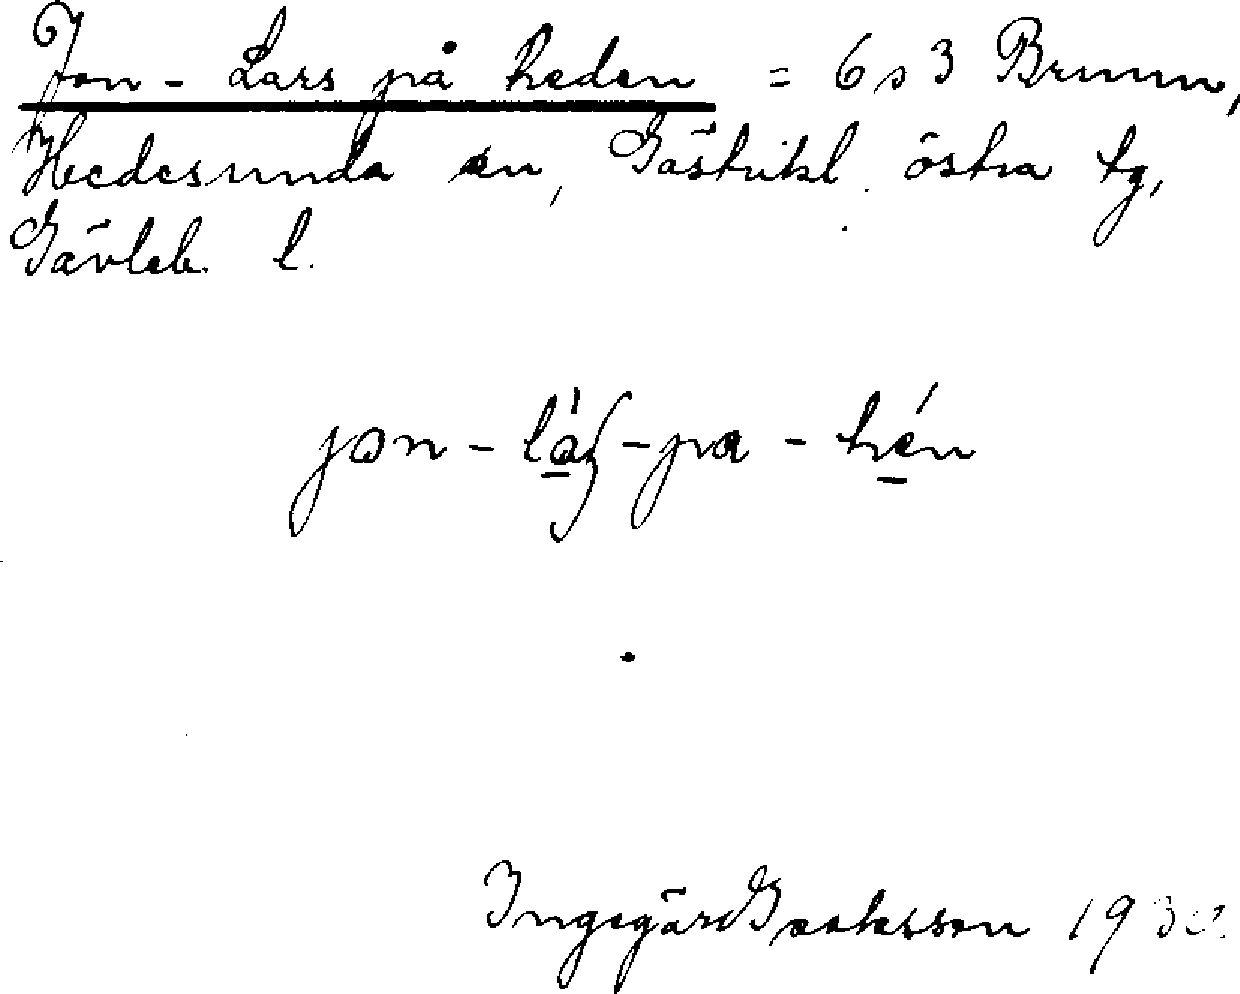 Jon-Lars på heden = 6s3 Brunn,
Hedesunda sn, Gästrikl. östra tg,
Gävleb. l.
jon-lás-pa-hén
Ingegärd Isaksson 193